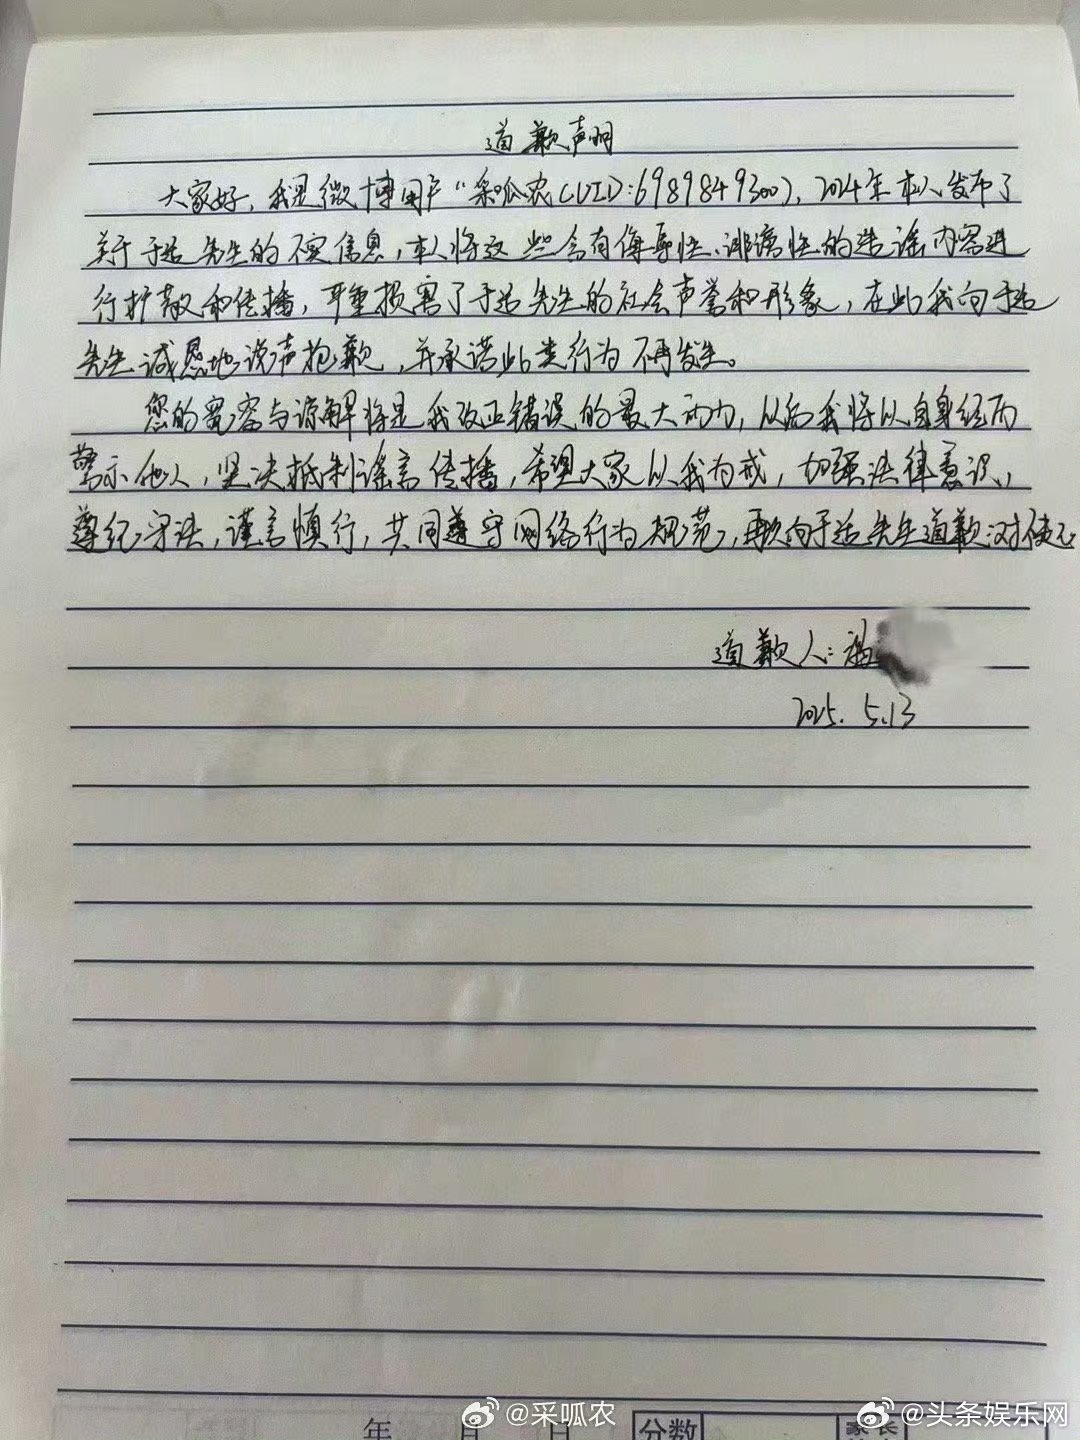 道歉声明
大家好，我是微博用户"采呱农(UID:6989849300)，2024年本人发布了
关于于适先生的不实信息，本人将这些含有侮辱性、诽谤性的造谣内容进
行扩散和传播，严重损害了于适先生的社会声誉和形象，在此我向于适
先生诚恳地说声抱歉，并承诺此类行为不再发生。
您的宽容与谅解将是我改正错误的最大动力，以后我将以自身经历
警示他人，坚决抵制谣言传播，希望大家以我为戒，加强法律意识，
尊纪守法，谨言慎行，共同遵守网络行为规范，再次向于适先生道歉:对
道歉人:
2025.5.13
年 月 日 分数 家长
@采呱农
@头条娱乐网